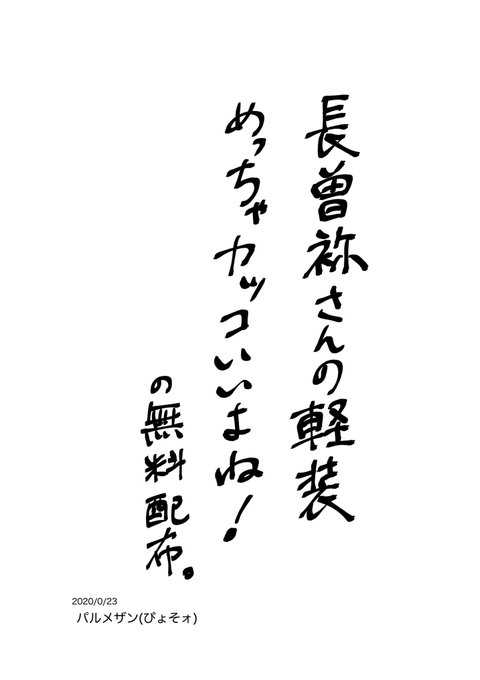 長曽祢さんの軽装
めっちゃカッコいいよね!
の無料配布。
2020/0/23
パルメザン(ぴょそォ)